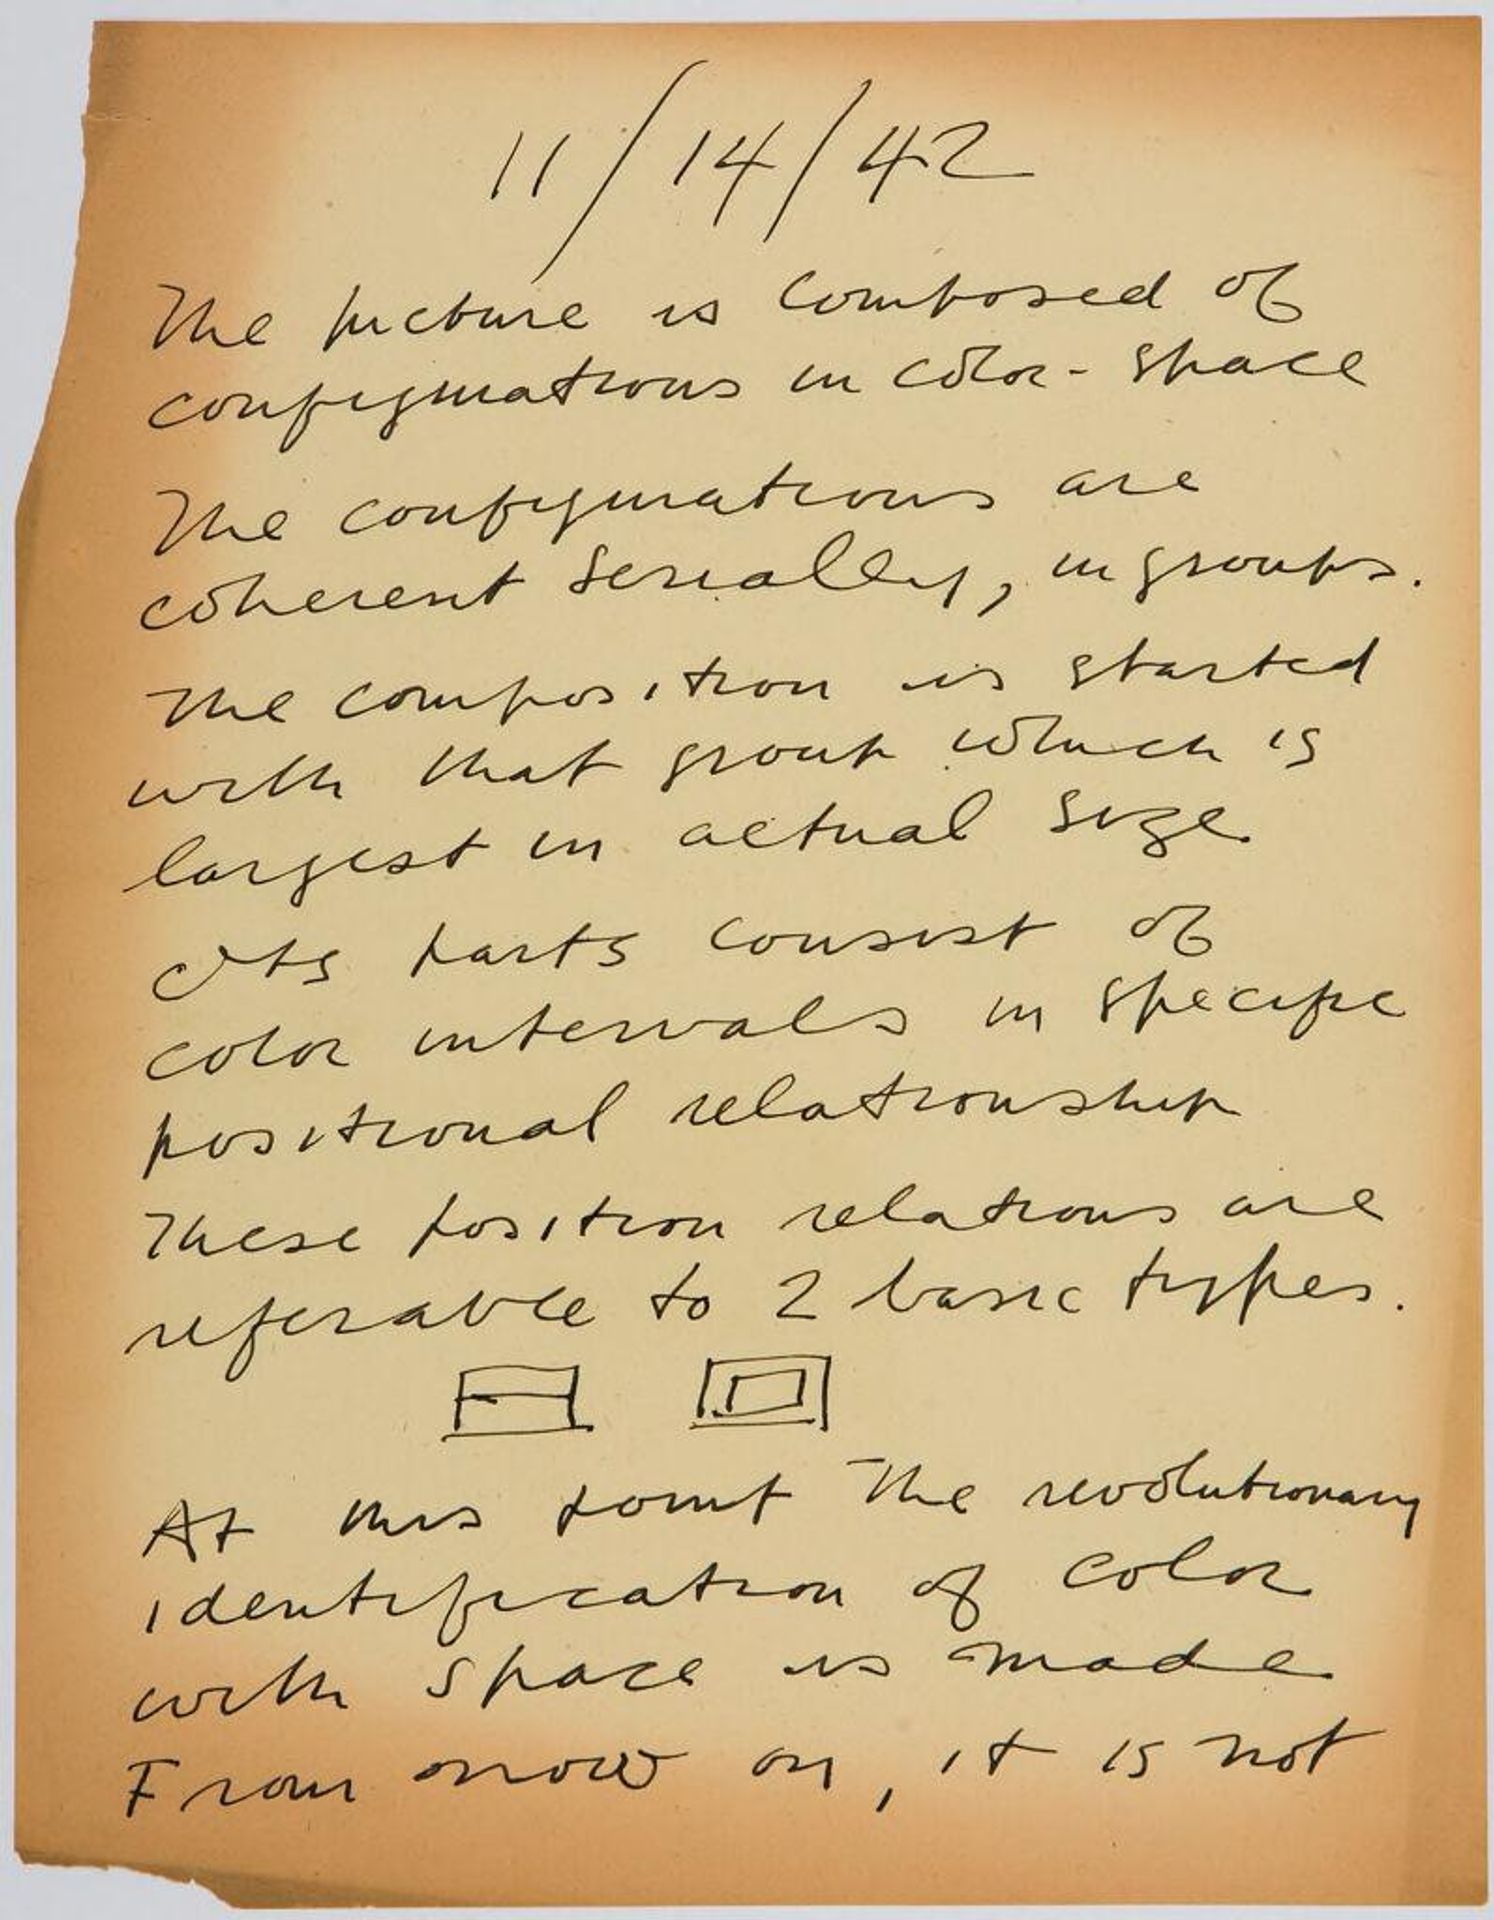 11/14/42
The picture is composed of
configurations in color-space
The configurations are
coherent serially, in groups.
The composition is started
with that group which is
largest in actual size
Its parts consist of
color intervals in specific
positional relationship
These position relations are
referable to 2 basic types.
At this point the revolutionary
identification of color
with space is made
From now on, it is not